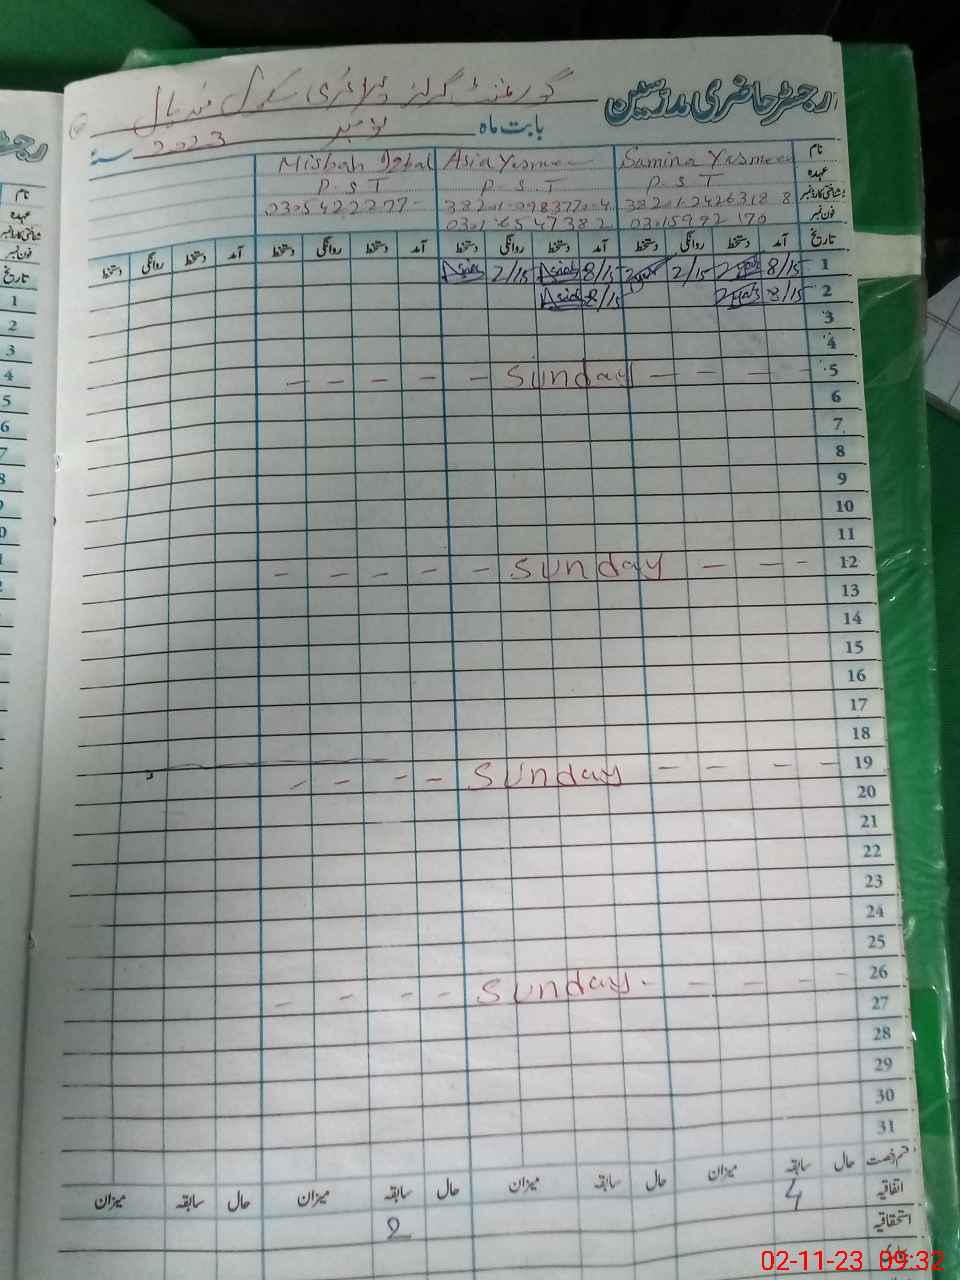 رجسٹر حاضری مدرسین گورنمنٹ گرلز پرائمری سکول
بابت ماہ نومبر 2023 سنہ
نام Samina Yasmeen Asia Yasmeen Misbah Iqbal
عہدہ P S T P S T P S T
شناختی کارڈ نمبر
فون نمبر
تاریخ آمد دستخط روانگی دستخط آمد دستخط روانگی دستخط آمد دستخط روانگی دستخط آمد دستخط روانگی دستخط
1 8/15 2/15 8/15 Asia 2/15 Asia
2 8/15 8/15 Asia
3
4
5 Sunday
6
7
8
9
10
11
12 Sunday
13
14
15
16
17
18
19 Sunday
20
21
22
23
24
25
26 Sunday
27
28
29
30
31
قسم رخصت حال سابقہ میزان حال سابقہ میزان حال سابقہ میزان حال سابقہ میزان
اتفاقیہ 4
استحقاقیہ 2
02-11-23 09:32
رجسٹر
نام
عہدہ
شناختی کارڈ نمبر
فون نمبر
تاریخ
1
2
3
4
5
6
7
8